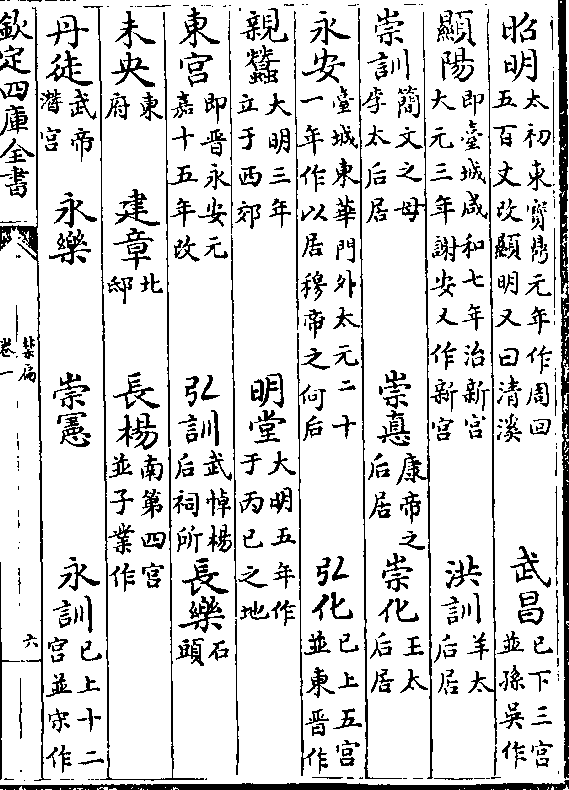 昭明太初東寳鼎元年作周回五百丈改顯明又曰清溪 武昌已下三宫並孫吳作
顯陽即臺城咸和七年治新宫大元三年謝安乂作新宫 洪訓羊太后居
崇訓簡文之母李太后居 崇真康帝之后居 崇化王太后居
永安臺城東華門外太元二十一年作以居穆帝之何后 弘化已上五宫並東晋作
親蠶大明三年立于西郊 明堂大明五年作于丙已之地
東宫即晋永安元嘉十五年改 弘訓武悼楊后祠所 長樂石頭
未央東府 建章北邸 長楊南第四宫並子業作
丹徒武帝潛宫 永樂 崇憲 永訓已上十二宫並宋作
欽定四庫全書
禁扁
卷一
六